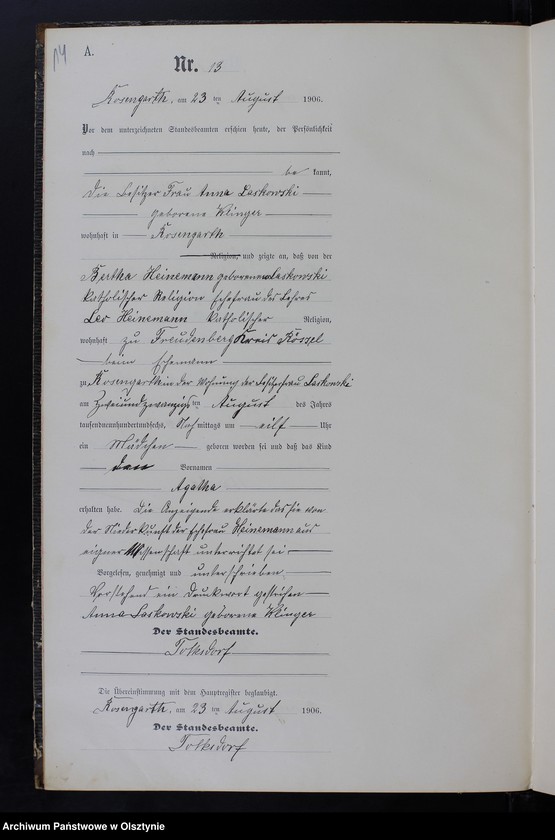 A.
Nr. 13
Rosengarth, am 23 ten August 1906.
Vor dem unterzeichneten Standesbeamten erschien heute, der Persönlichkeit
nach
be kannt,
die Besitzer Frau Anna Laskowski
geborene Klinger
wohnhaft in Rosengarth
Religion, und zeigte an, daß von der
Bertha Heinemann geborenen Laskowski
katholischer Religion Ehefrau des Lehrers
Leo Heinemann katholischer Religion,
wohnhaft zu Freudenberg Kreis Rössel
beim Ehemann
zu Rosengarth in der Wohnung der Besitzerfrau Laskowski
am Zweiundzwanzigs ten August des Jahres
tausendneunhundertundsechs, Nachmittags um eilf Uhr
ein Mädchen geboren worden sei und daß das Kind
den Vornamen
Agatha
erhalten habe. Die Anzeigende erklärte das sie von
der Niederkunft der Ehefrau Heinemann aus
eigner Wissenschaft unterrichtet sei.
Vorgelesen, genehmigt und unterschrieben
Vorstehend ein Druckwort gestrichen
Anna Laskowski geborene Klinger
Der Standesbeamte.
Tolksdorf
Die Übereinstimmung mit dem Hauptregister beglaubigt.
Rosengarth, am 23 ten August 1906.
Der Standesbeamte.
Tolksdorf
Archiwum Państwowe w Olsztynie